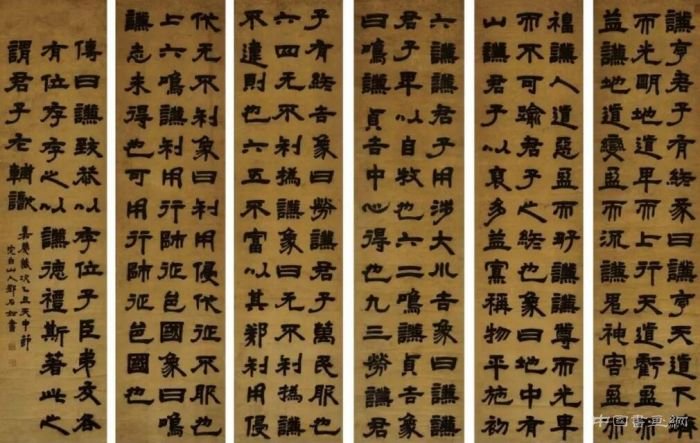 謙亨君子有終彖曰謙亨天道下濟
而光明地道卑而上行天道虧盈而
益謙地道變盈而流謙鬼神害盈而
福謙人道惡盈而好謙謙尊而光卑
而不可踰君子之終也象曰地中有
山謙君子以裒多益寡稱物平施初
六謙謙君子用涉大川吉象曰謙謙
君子卑以自牧也六二鳴謙貞吉象
曰鳴謙貞吉中心得也九三勞謙君
子有終吉象曰勞謙君子萬民服也
六四无不利撝謙象曰无不利撝謙
不違則也六五不富以其鄰利用侵
伐无不利象曰利用侵伐征不服也
上六鳴謙利用行師征邑國象曰鳴
謙志未得也可用行師征邑國也
傳曰謙致恭以存位子臣弟友各
有位存存之以謙德禮斯著此之
謂君子
嘉慶歲次乙丑天中節
完白山人鄧石如書
中国書画網